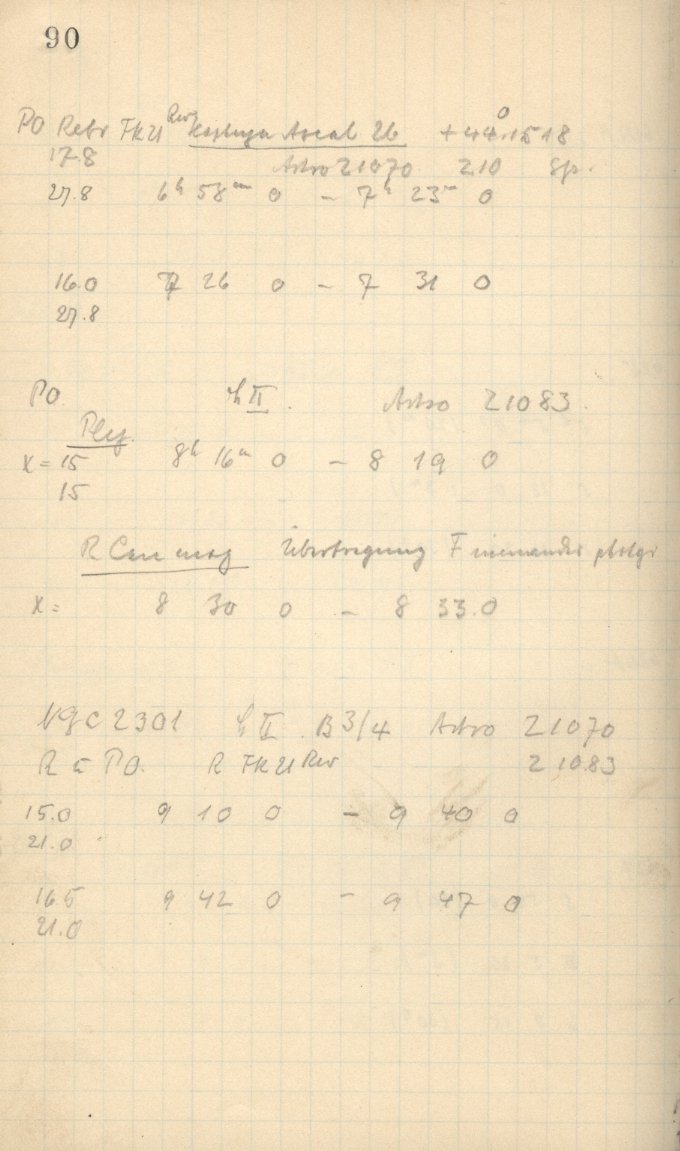 90
PO Rebr FK U Rev Areal 26 +44° 15 18
17.8 Astro Z1070 210 Sp.
27.8 6h 58m 0 – 7h 23m 0
16.0 7 26 0 – 7 31 0
27.8
PO ♄ II. Astro Z1083.
Plej.
x = 15 8h 16m 0 – 8 19 0
15
R Can maj Übertragung
x = 8 30 0 – 8 33.0
NGC 2301 ♄ II. B 3/4 Astro Z1070
R u PO. R FK U Rev Z1083
15.0 9 10 0 – 9 40 0
21.0
16.5 9 42 0 – 9 47 0
21.0